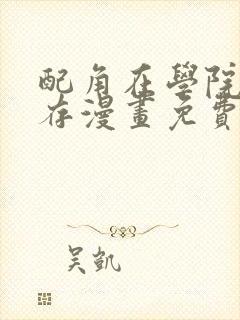 配角在學院
存漫畫免費
吴凱